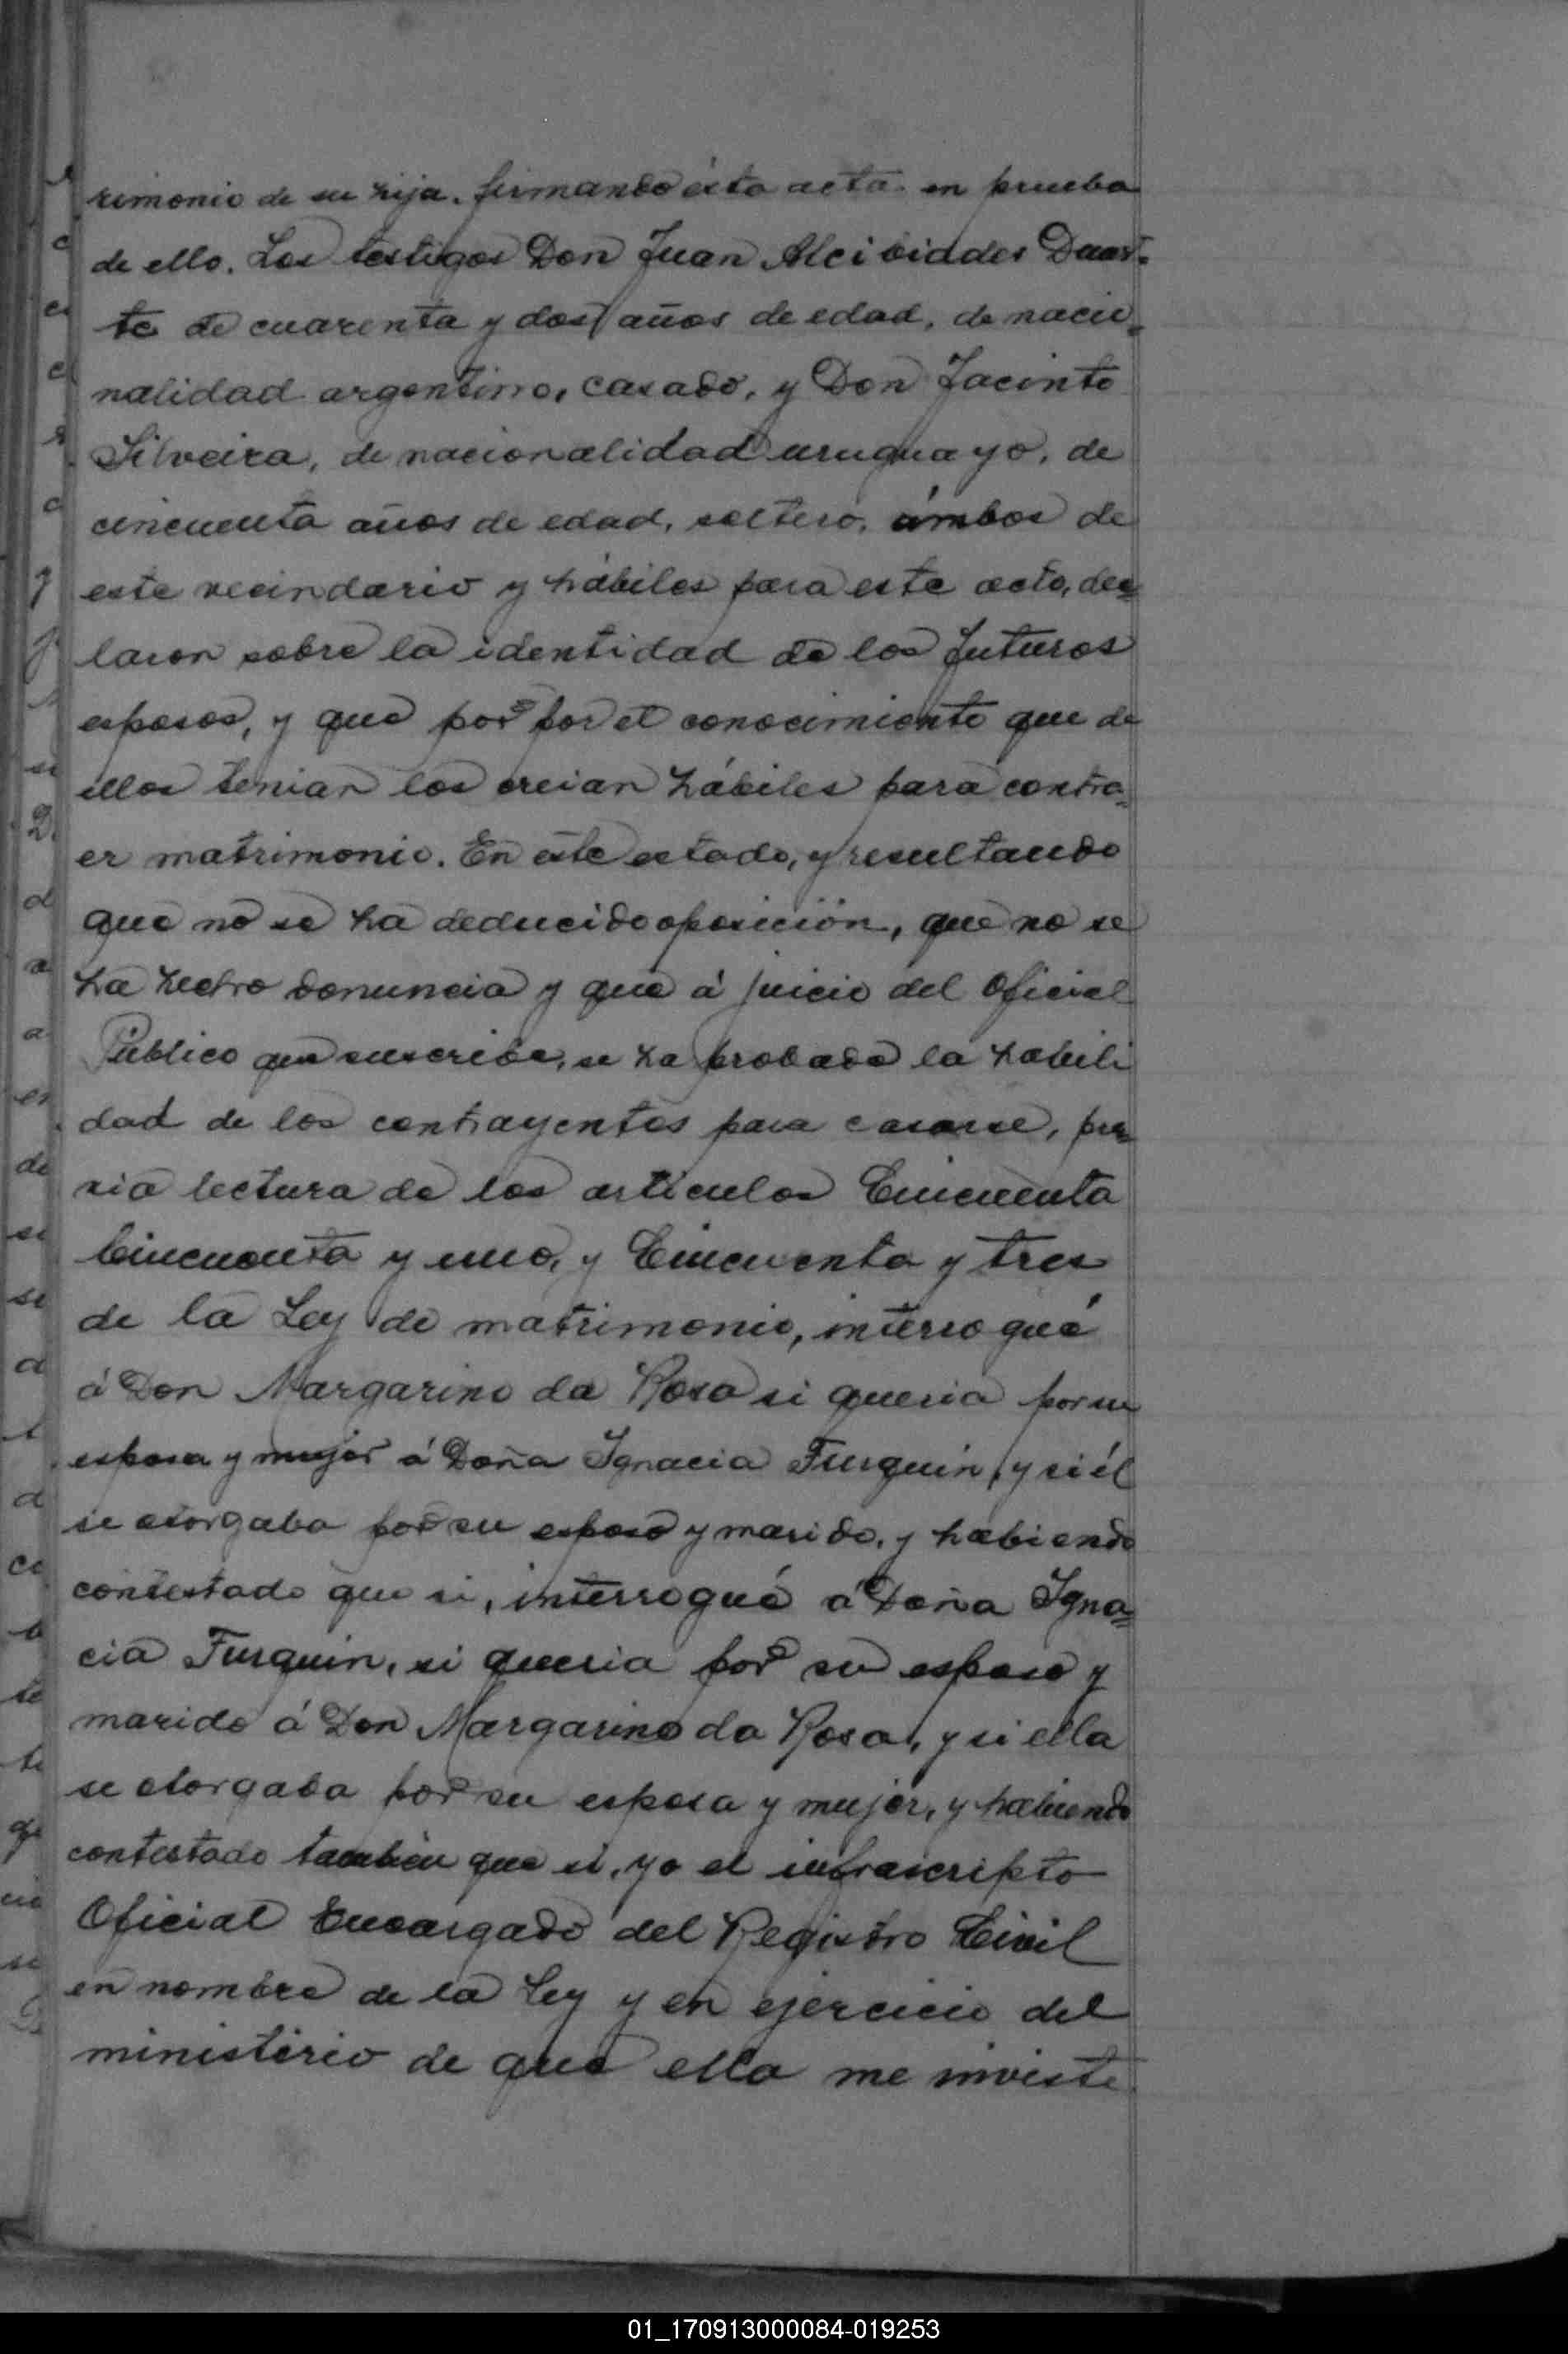 rimonio de su hija, firmando ésta acta en prueba
de ello. Los testigos Don Juan Alcibiades Duar-
te de cuarenta y dos años de edad, de nacio-
nalidad argentino, casado, y Don Jacinto
Silveira, de nacionalidad uruguayo, de
cincuenta años de edad, soltero, ámbos de
este vecindario y hábiles para este acto, dec-
laron sobre la identidad de los futuros
esposos, y que por por el conocimiento que de
ellos tenian los creian hábiles para contra-
er matrimonio. En éste estado, y resultando
que no se ha deducido oposición, que no se
ha hecho denuncia y que á juicio del Oficial
Público que suscribe, se ha probado la habili
dad de los contrayentes para casarse, pre-
via lectura de los articulos Cincuenta
Cincuenta y uno, y Cincuenta y tres
de la Ley de matrimonio, interrogué
á Don Margarino da Rosa si queria por su
esposa y mujer á Doña Ignacia Furquin, y si él
se otorgaba por su esposo y marido, y habiendo
contestado que si, interrogué á Doña Igna-
cia Furquin, si queria por su esposo y
marido á Don Margarino da Rosa, y si ella
se otorgaba por su esposa y mujer, y habiendo
contestado tambien que si, yo el infrascripto
Oficial Encargado del Registro Civil
en nombre de la Ley y en ejercicio del
ministerio de que ella me inviste
01_170913000084-019253